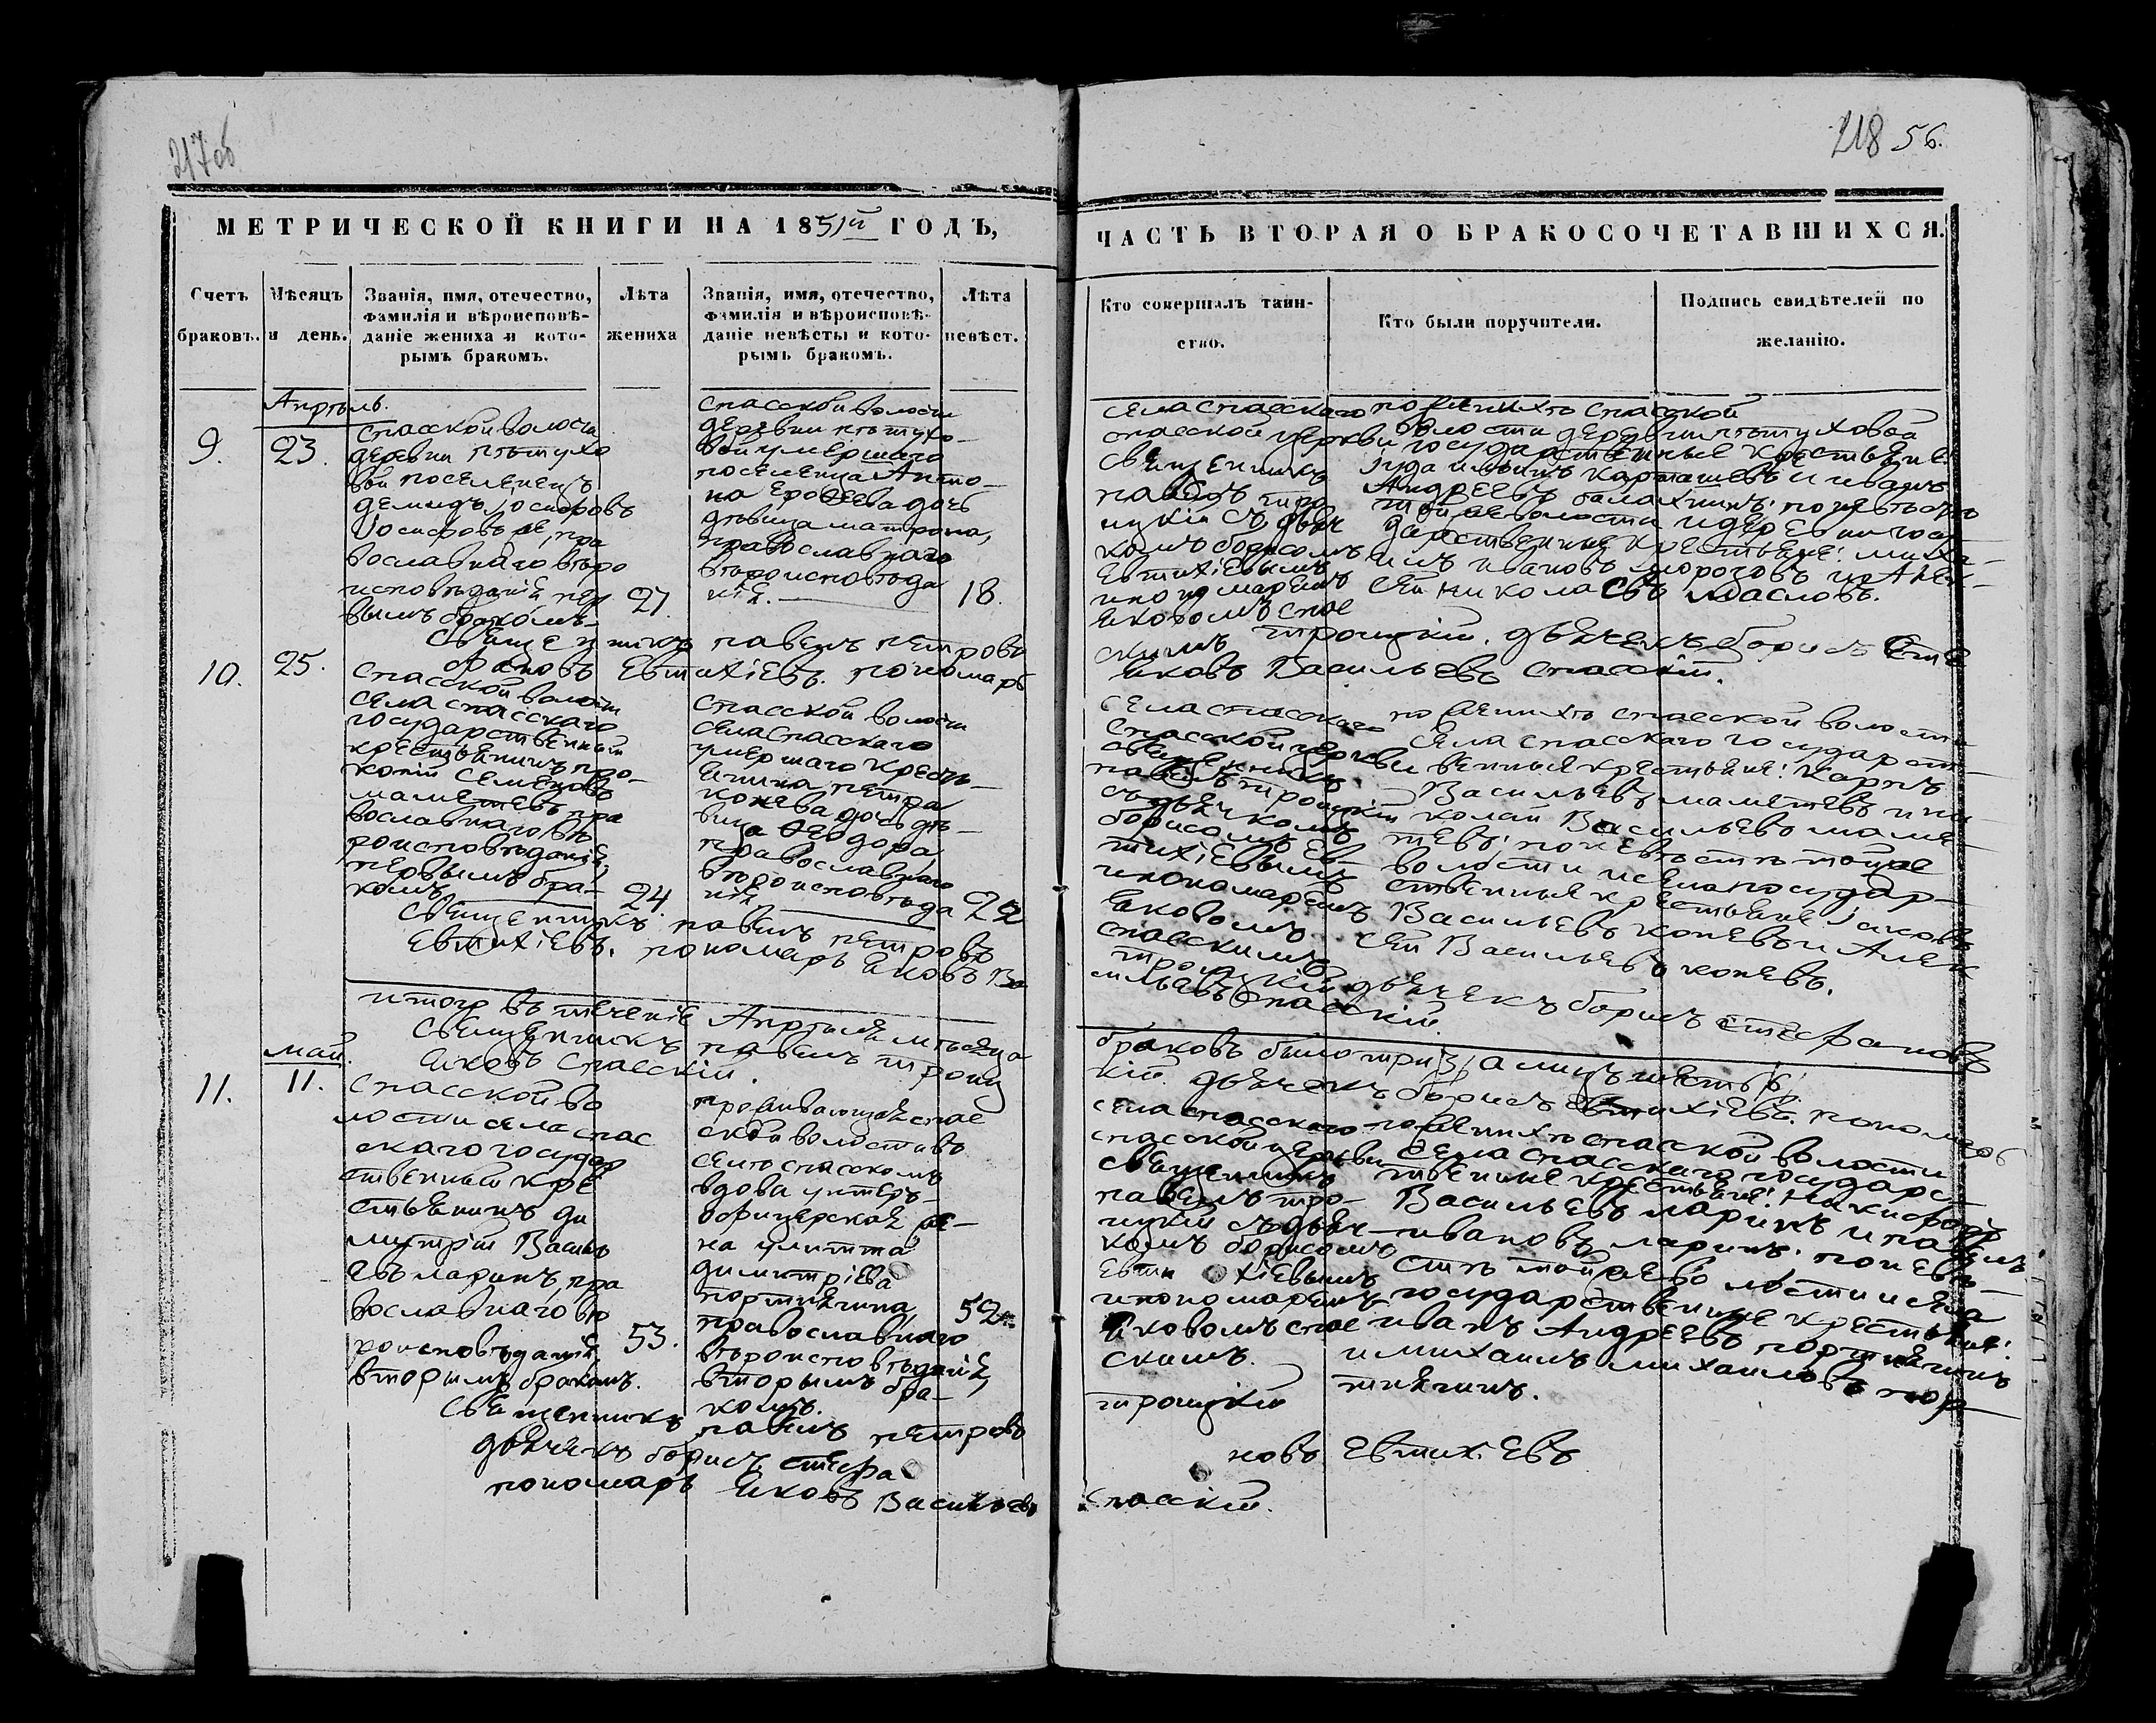 217об
218 56.
МЕТРИЧЕСКОЙ КНИГИ НА 1851й ГОДЪ,
ЧАСТЬ ВТОРАЯ О БРАКОСОЧЕТАВШИХСЯ.
Счетъ браковъ.
Мѣсяцъ и день.
Званія, имя, отечество,
фамилія и вѣроисповѣ-
даніе жениха и кото-
рымъ бракомъ.
Лѣта жениха
Званія, имя, отечество,
фамилія и вѣроисповѣ-
даніе невѣсты и кото-
рымъ бракомъ.
Лѣта невѣст.
Кто совершалъ таин-
ство.
Кто были поручители.
Подпись свидѣтелей по
желанію.
Апрѣль.
9.
23.
спасской волости
деревни пѣтухо
вой поселенецъ
демидъ іосифовъ
іосифовъ же, пра
вославнаго вѣро
исповѣданія, пер
вымъ бракомъ
27
спасской волости
деревни пѣтухо-
вой умершаго
поселенца Анто-
на Ерофеева дочь
дѣвица матрона,
православнаго
вѣроисповѣда
нія.
18.
села спасскаго
спасской церкви
священникъ
павелъ тро
ицкій съ дьяч
комъ борисомъ
Евтихіевымъ
и пономаремъ
Яковомъ спас
скимъ
по женихѣ спасской
волости деревни пѣтуховой
государственные крестьяне:
іуда карташевъ и иванъ
Андреевъ балахнинъ: по невѣстѣ
той же волости и деревни госу
дарственные крестьяне: миха-
илъ ивановъ морозовъ и Алек-
сѣй николаевъ масловъ.
священникъ павелъ петровъ троицкій. дьячекъ борисъ Сте
фановъ Евтихіевъ. пономарь Яковъ Васильевъ спасскій.
10.
25.
спасской волости
села спасскаго
государственный
крестьянинъ про-
копій Семеновъ
маметевъ, пра
вославнаго вѣ
роисповѣданія,
первымъ бра-
комъ
24.
спасской волости
села спасскаго
умершаго кресть-
янина петра
конева дочь дѣ-
вица Феодора,
православнаго
вѣроисповѣда
нія.
22
села спасскаго
спасской церкви
священникъ
павелъ троицкій
съ дьячкомъ
борисомъ Ев-
тихіевымъ
и пономаремъ
Яковомъ
спасскимъ
по женихѣ спасской волости
села спасскаго государст-
венные крестьяне: Карпъ
Васильевъ маметевъ и ни-
колай Васильевъ маме-
тевъ: по невѣстѣ той же
волости и села государ-
ственные крестьяне: іаковъ
Васильевъ коневъ и Алек
сѣй Васильевъ коневъ.
священникъ павелъ петровъ троицкій дьячекъ борисъ стефановъ
Евтихіевъ. пономарь Яковъ Ва сильевъ Спасскій.
итого въ теченіе Апрѣля мѣсяца браковъ было три /3/ а лицъ шесть /6/
священникъ павелъ троиц кій. дьячекъ борисъ Евтихіевъ. пономарь
Яковъ Спасскій.
май.
11.
11.
спасской во
лости села спас
скаго государ
ственный кре
стьянинъ ди
митрій Василь
евъ ларинъ, пра
вославнаго вѣ
роисповѣданія,
вторымъ бракомъ.
53.
проживающая спас
ской волости въ
селѣ спасскомъ
вдова унтеръ-
офицерская же-
на улитта
димитріева
портнягина,
православнаго
вѣроисповѣданія,
вторымъ бра-
комъ.
52
села спасскаго
спасской церкви
священникъ
павелъ тро-
ицкій съ дьяч-
комъ борисомъ
Евтихіевымъ
и пономаремъ
Яковомъ спас
скимъ.
по женихѣ спасской волости
села спасскаго государс-
твенные крестьяне: никифоръ
Васильевъ ларинъ и павелъ
ивановъ ларинъ: по невѣ-
стѣ той же волости и села
государственные крестьяне:
иванъ Андреевъ портнягинъ
и михаилъ михаиловъ пор-
тнягинъ.
священникъ павелъ петровъ троицкій
дьячекъ борисъ стефа новъ Евтихіевъ
пономарь Яковъ Васильевъ спасскій.